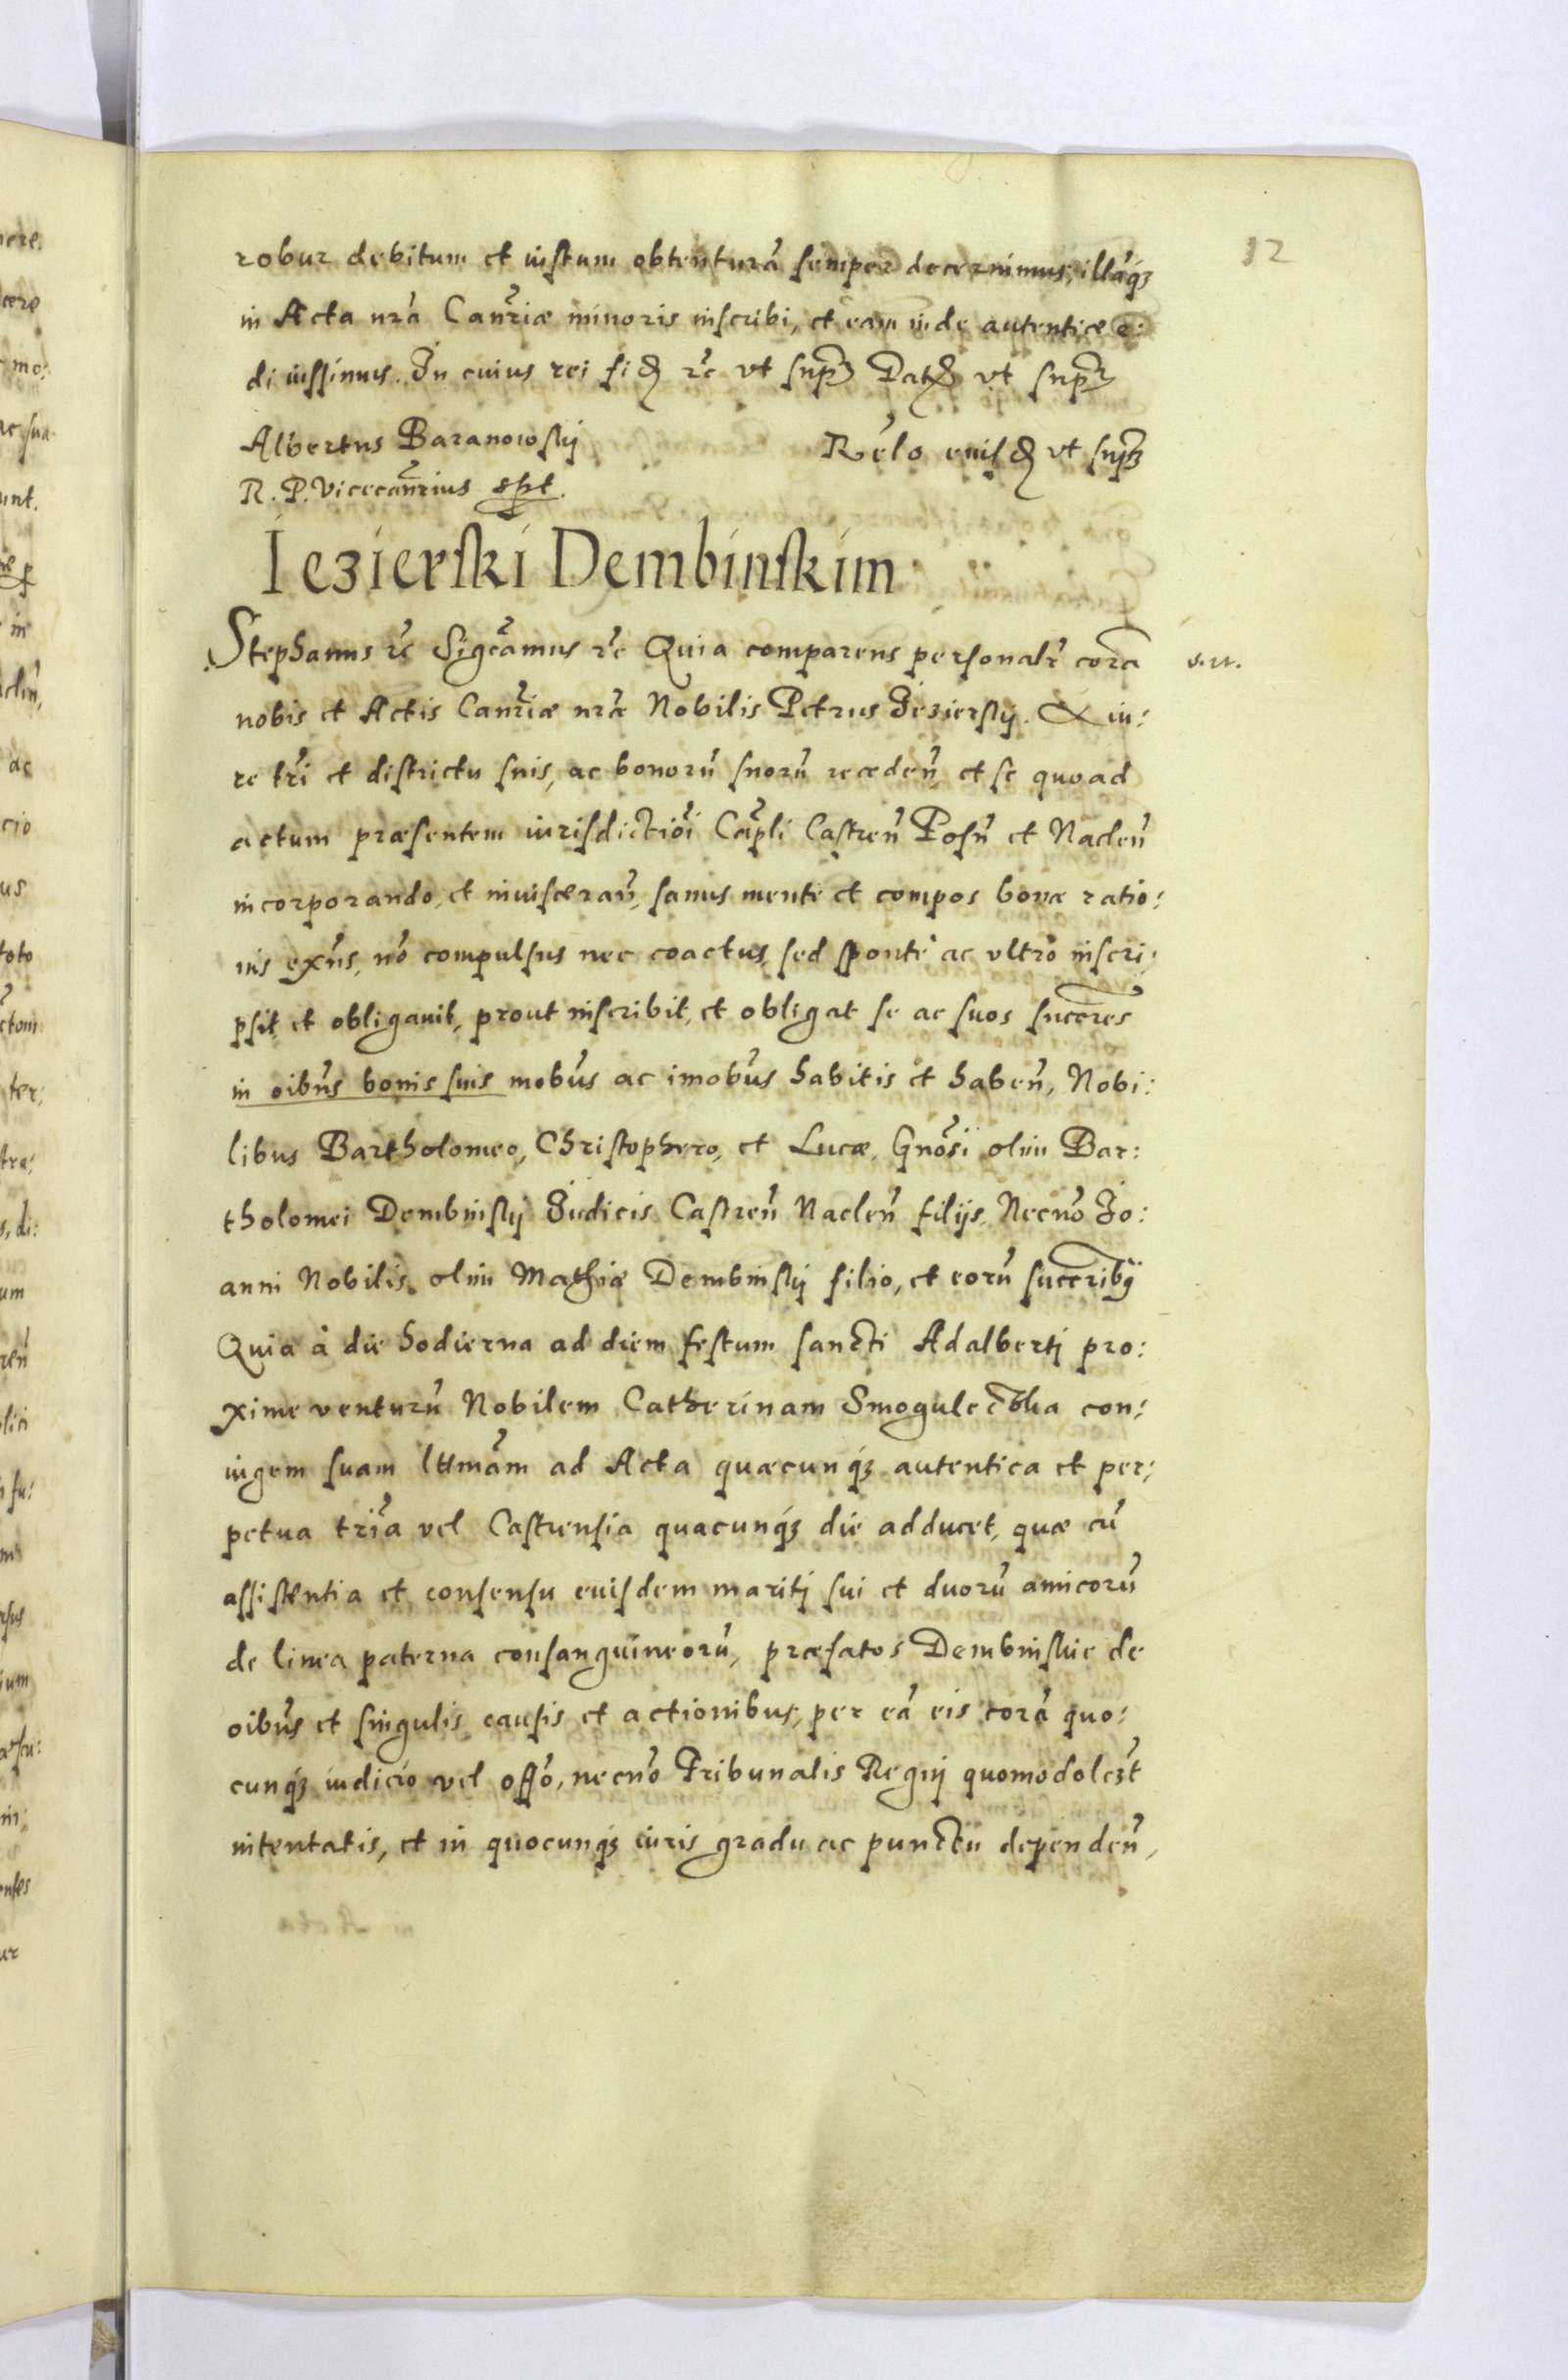 12
robur debitum et iustum obtenturã semper decernimus, illãq3
in Acta nr̃a Canr̃iæ minoris inscribi, et eam inde autenticæ e:
di iussimus. In cuius rei fid. rc̃ vt supra Dat. vt supra
Albertus Baranowskij
Rẽlo eiusd. vt supra
R. P. Vicecanr̃ius spt.
Iezierski Dembinskim
Stephanus rc̃ Sigcãmus rc̃ Quia comparens personalr̃ corã
nobis et Actis Canr̃iæ nr̃æ Nobilis Petrus Jezierskij. A iu:
re tr̃i et districtu suis, ac bonorũ suorũ receden̄, et se quoad
actum præsentem iurisdictiõi Cap̃li Castren̄ Posn̄ et Naclen̄
incorporando, et inuisceran̄, sanus mente et compos bonæ ratio:
nis exñs, nõ compulsus nec coactus, sed sponte ac vltro inscri:
psit et obligauit, prout inscribit, et obligat se ac suos succr̃es
in oib̃us bonis suis mob̃us ac imob̃us habitis et haben̄, Nobi:
libus Bartholomeo, Christophero, et Lucæ, Gnõsi olim Bar:
tholomei Dembinskij Judicis Castren̄ Naclen̄ filijs, Necnõ Jo:
anni Nobilis olim Mathiæ Dembinskij filio, et eorũ succr̃ibq
Quia à die hodierna ad diem festum sancti Adalbertj pro:
xime venturũ Nobilem Catherinam Smogulecka con:
iugem suam lttmãm ad Acta quæcunq3 autentica et per:
petua tr̃ia vel Castrensia quacunq3 die adducet, quæ cũ
assistentia et consensu eiusdem maritj sui et duorũ amicorũ
de linea paterna consanguineorũ, præfatos Dembinskie de
oib̃us et singulis causis et actionibus, per eã eis corã quo:
cunq3 iudicio vel offõ, necnõ Tribunalis Regnj quomodolc3t
intentatis, et in quocunq3 iuris gradu ac punctu dependen̄,